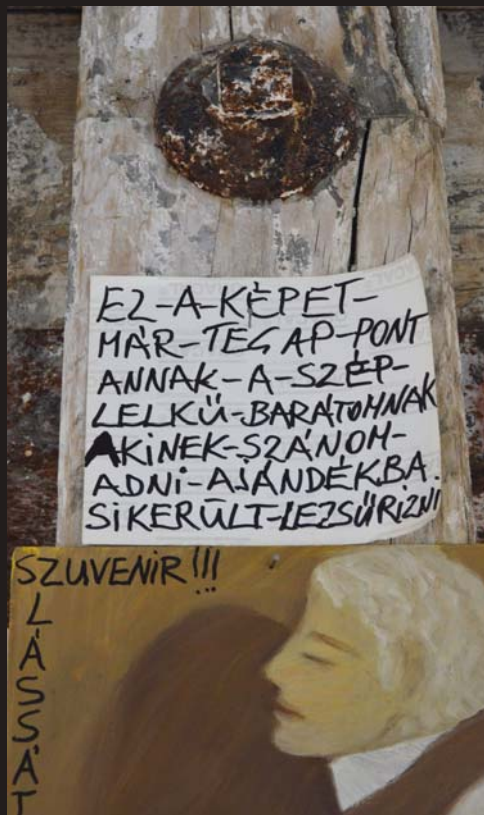 EZ-A-KÉPET-
MÁR-TEGAP-PONT
ANNAK-A-SZÉP-
LELKŰ-BARÁTOMNAK
AKINEK-SZÁNOM-
ADNI-AJÁNDÉKBA.
SIKERÜLT-LEZSŰRIZNI
SZUVENIR!!!
LÁSSÁT